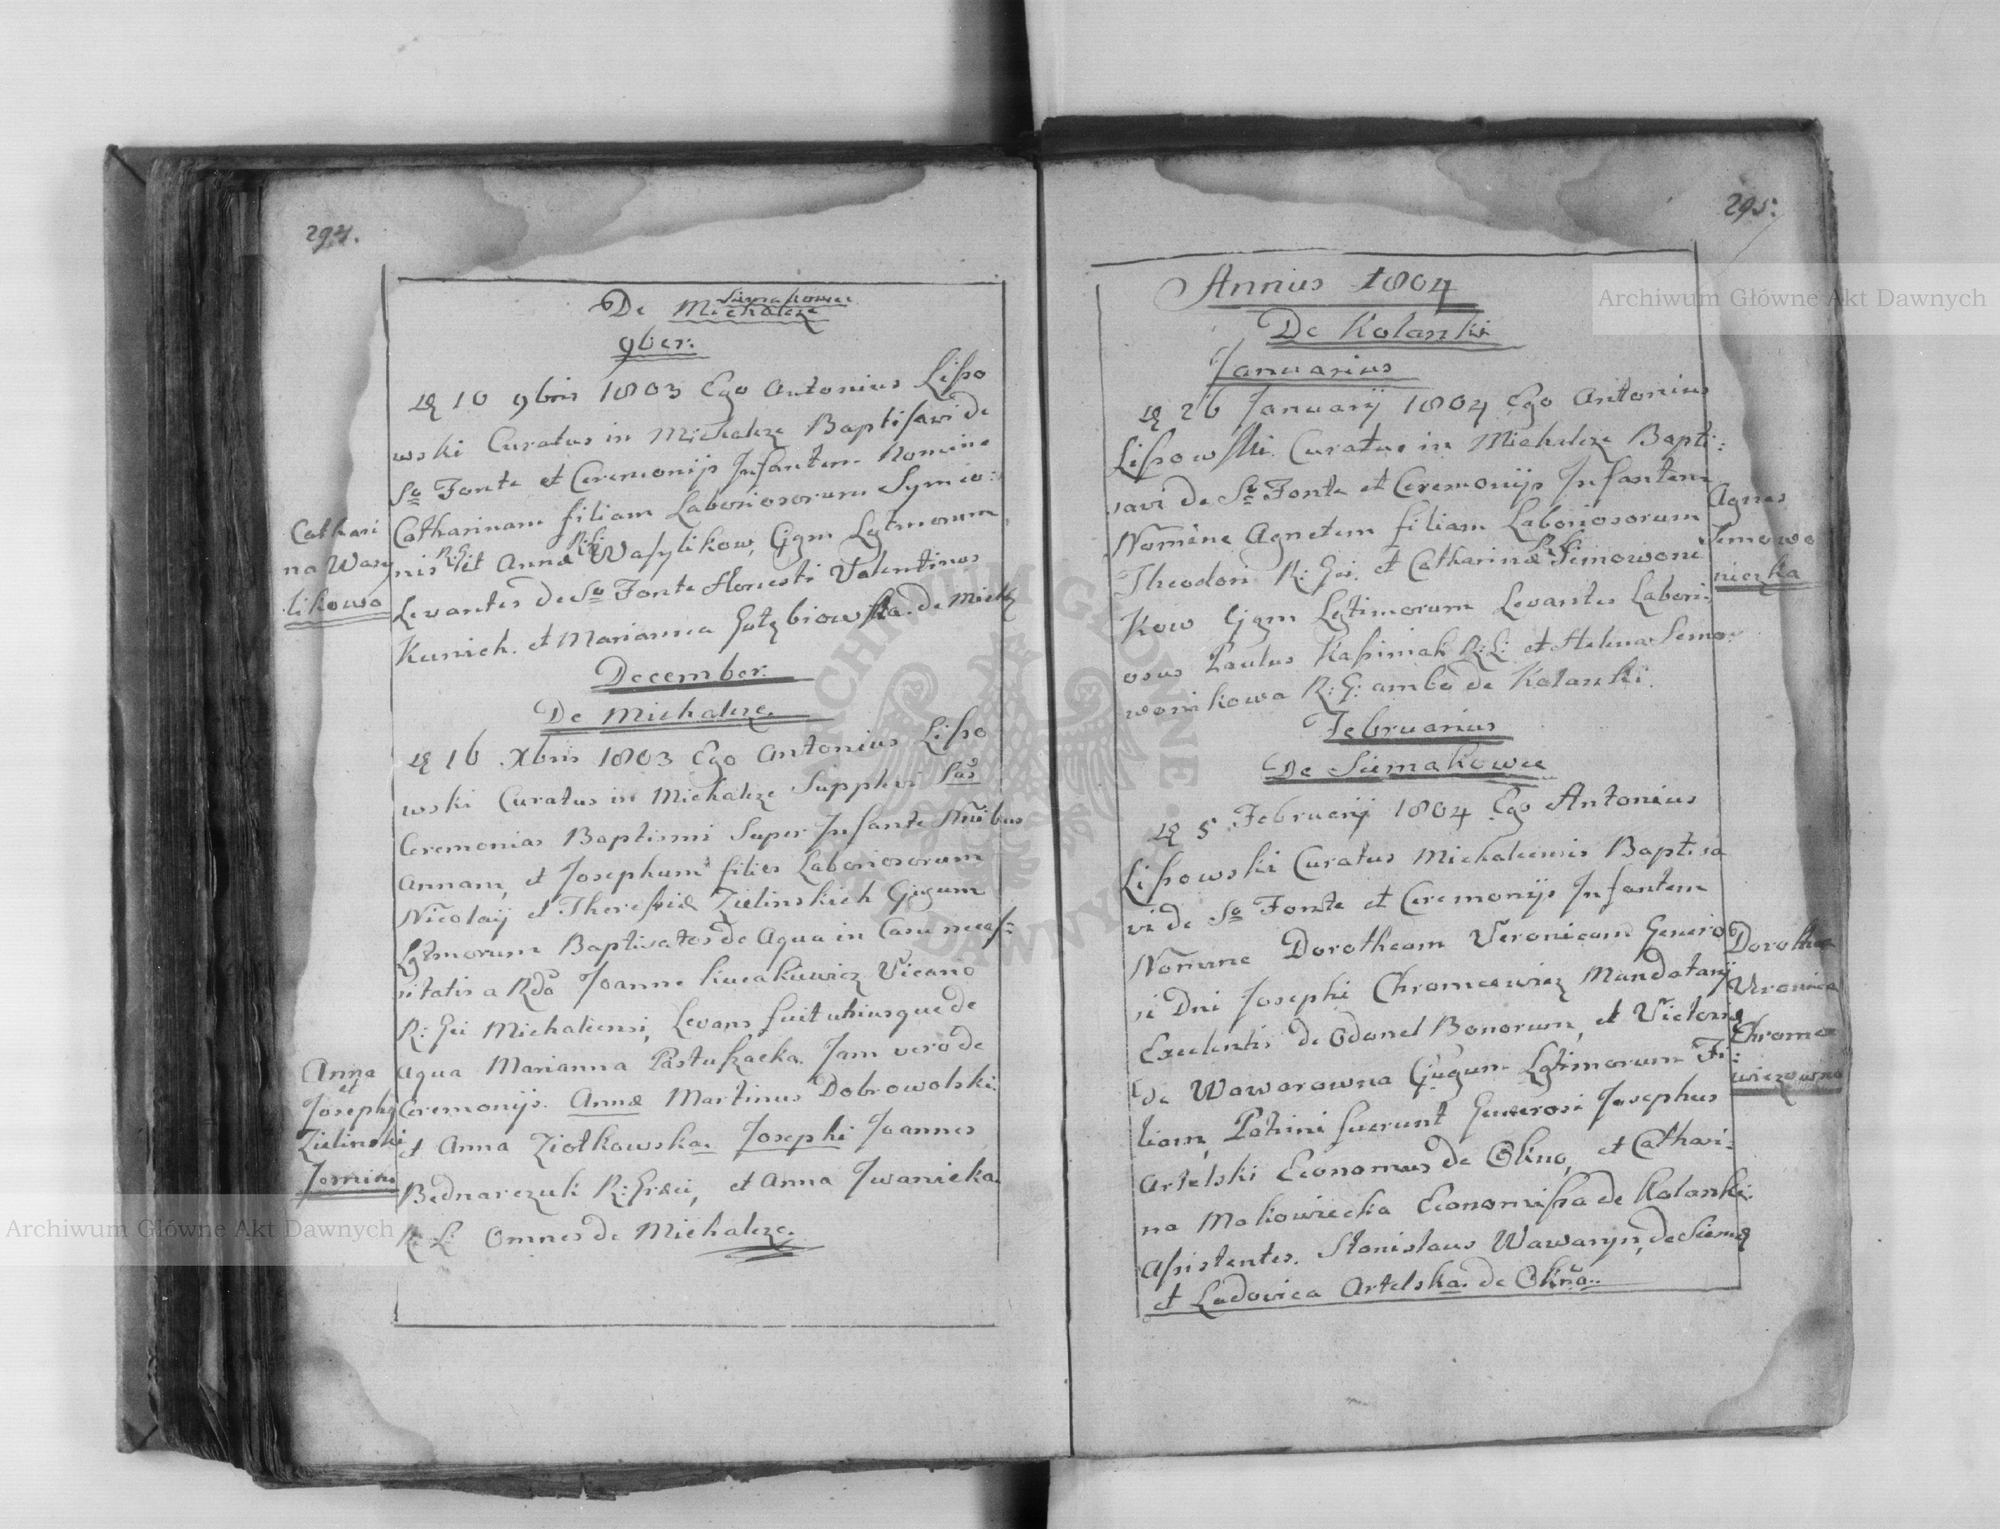 294.
De Michalcze
Siemakowce
9ber:
10 9bris 1803 Ego Antonius Lisso
wski Curatus in Michalcze Baptisavi de
So Fonte et Ceremonijs Infantem Nomine
Catharinam filiam Laboriosorum Symeo:
nis R:G: et Annæ R:G: Wasylikow, Ggm Lgtmorum
Levantes de So Fonte Honesti Valentinus
Kunich. et Marianna Gołębiowska. de
Cathari
na Wasy
likowa
December.
De Michalcze.
16 Xbris 1803 Ego Antonius Lisso
wski Curatus in Michalcze Supplevi Sas
Ceremonias Baptismi Super Infante
Annam, et Josephum filios Laboriosorum
Nicolaij et Theressiæ Zielinskich Gigum
Lgtmorum Baptisatos de Aqua in Casu necess:
sitatis a Rdo Joanne Vicario
R: Gri Michalcensi, Levans fuit utriusque de
aqua Marianna Pastuszacka. Jam vero de
Ceremonijs. Annæ Martinus Dobrowolski.
et Anna Ziołkowska. Josephi Joannes
Bednarczuk R: Græci, et Anna Iwanicka.
R: L: Omnes de Michalcze.
Anna
et
Joseph
Zielinski
Jemini
295.
Annus 1804
De Kolanki
Januarius
26 Januarij 1804 Ego Antonius
Lissowski. Curatus in Michalcze Bapti:
savi de So Fonte et Ceremonijs Infantem
Nomine Agnetem filiam Laboriosorum
Theodori R: Gri. et Catharinæ R:G: Semowoni
kow Ggm Lgtimorum Levantes Labori:
osus Paulus Kasiniak R: L: et Helena Semo:
wonikowa R: G: ambo de Kolanki.
Agnes
Semowo
niczka
Februarius
De Siemakowce
5 Februarij 1804 Ego Antonius
Lissowski Curatus Michalcensis Baptisa
vi de So Fonte et Ceremonijs Infantem
Nomine Dorotheam Veronicam Genero
si Dni Josephi Chromcewicz Mandatarij
Excelentis de Odonel Bonorum, et Victoriæ
de Wawarowna Gigum Lgtimorum Fi:
liam, Patrini fuerunt Generosi Josephus
Artelski Economus de Okno, et Cathari:
na Makowiecka Economissa de Kolanki.
Assistentes. Stanislaus Wawaryn, de Siema
et Ludovica Artelska. de Okno.
Dorothea
Veronica
Chromce
wiczowna
Archiwum Główne Akt Dawnych
Archiwum Główne Akt Dawnych
ARCHIWUM GŁÓWNE AKT DAWNYCH